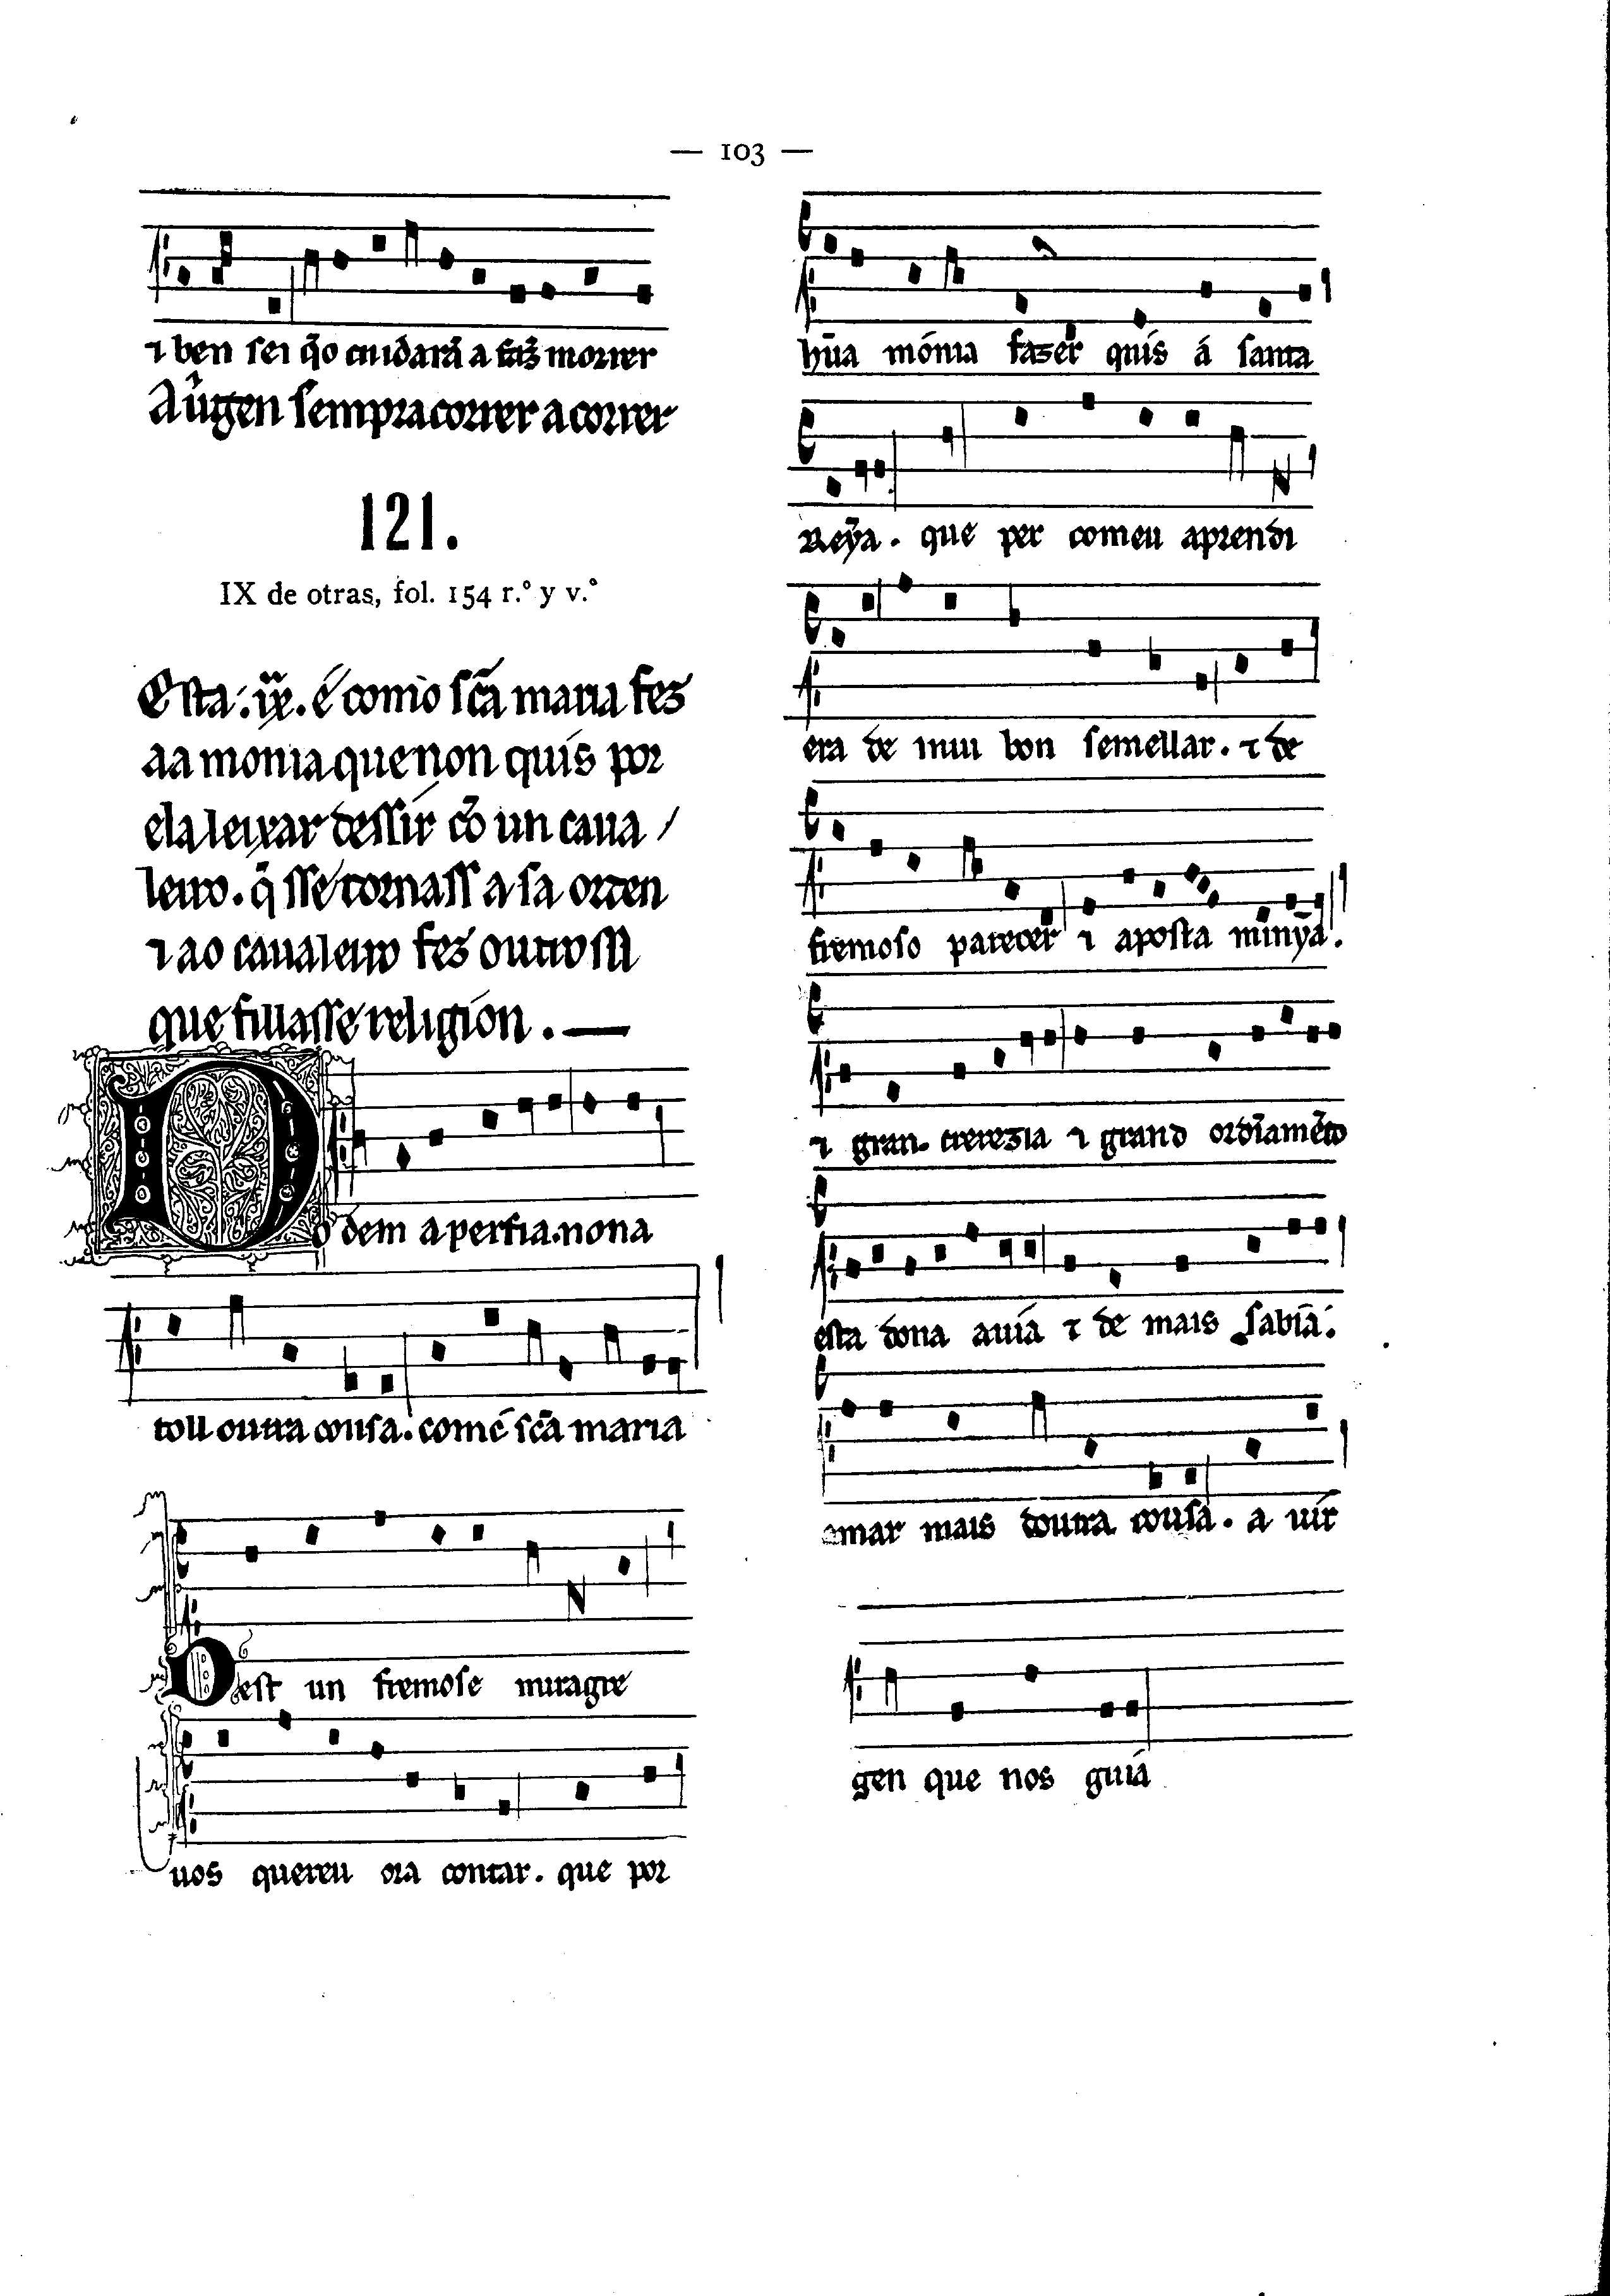 — 103 —
⁊ ben sei q̃o cuidará a faz̃ morrer
A uĩgen sempracorrer acorrer
121.
IX de otras, fol. 154 r.º y v.º
Esta .ix. é como sc̃a maria fez
aa monia que non quis por
ela leixar dessir cõ un caua/
leiro . q̃ sse tornass a sa orden
⁊ ao caualeiro fez outrossi
que fillasse religión . —
Do dem a perfia . nona
toll outra cousa . com é sc̃a maria
Dest un fremose miragre
uos quereu ora contar . que por
hũa mónia fazer quis á santa
Reỹa . que per com eu aprendi
era de mui bon semellar . ⁊ de
fremoso parecer ⁊ aposta minỹa .
⁊ gran . crerezia ⁊ grand ordĩamẽto
esta dona auiá ⁊ de mais sabiá :
amar mais doutra cousa . a uir
gen que nos guiá